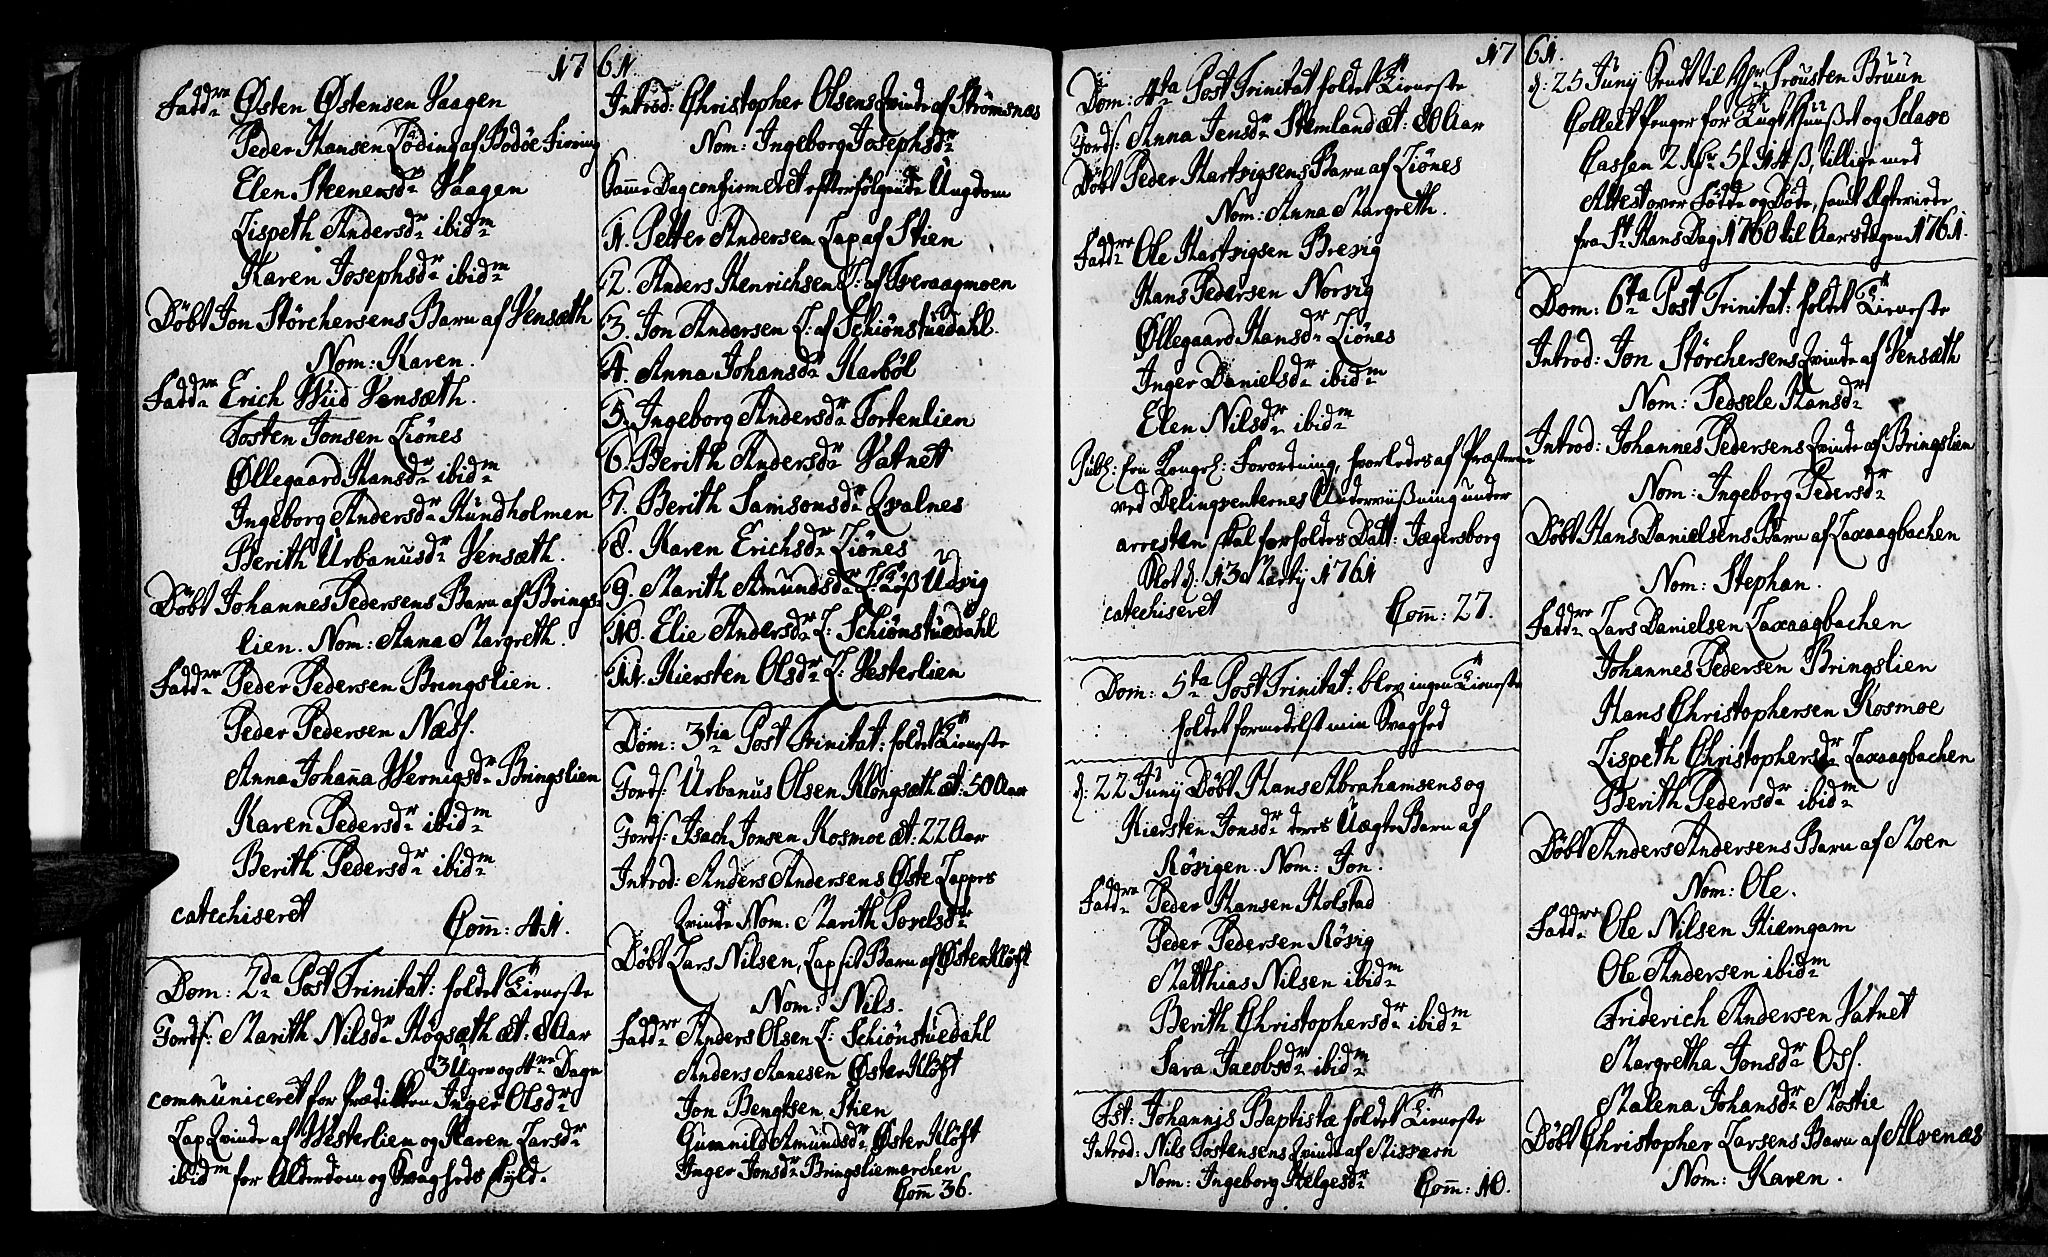 1761.
Faddre Østen Østensen Vaagen
Peder Hansen Løding af Bodøe Fiering
Elen Steenersdr Vaagen
Lispeth Andersdr ibidm
Karen Josephsdr ibidm
Døbt Jon Störchersens Barn af Vensæth
Nom: Karen.
Faddre Erich Wiid Vensæth.
Tosten Jonsen Ziönes
Øllegaard Hansdr ibidm
Ingeborg Andersdr Hundholmen
Berith Urbanusdr Vensæth.
Döbt Johannes Pedersens Barn af Brings-
lien. Nom: Anna Margreth.
Faddre Peder Pedersen Bringslien.
Peder Pedersen Næss.
Anna Johanna Wernigsdr Bringslien
Karen Pedersdr ibidm
Berith Pedersdr ibidm
catechiseret
Com: 41.
Dom: 2da Post Trinitat: holdet Tieneste
Jords: Marith Nilsdr Høgsæth æt: 8 Aar
3 Uger og 4re Dage
communiceret for Prædiken Inger Olsdr
Lap Qvinde af Westerlien og Karen Larsdr
ibidm for Alderdom og Svagheds skyld.
Introd: Christopher Olsens Qvinde af Strømsnæs
Nom: Ingeborg Josephsdr
Samme Dag confirmeret efterfölgende Ungdom
1. Petter Andersen Lap af Stien
2. Anders Henrichsen L: af Tveraagmoen
3. Jon Andersen L: af Schiönstuedahl.
4. Anna Johansdr Karböl
5. Ingeborg Andersdr Tortenlien
6. Berith Andersdr Vatnet
7. Berith Samsonsdr Qvalnes
8. Karen Erichsdr Ziönes
9. Marith Amundsdr L: Köß Udvig
10. Elie Andersdr L: Schiönstuedahl
11. Kiersten Olsdr L: Vesterlien
Dom: 3tia Post Trinitat: holdet Tieneste
Jords: Urbanus Olsen Klöngsæth æt: 50 Aar
Jords: Isach Jonsen Kosmoe æt: 22 Aar
Introd: Anders Andersens Øste Lappes
Qvinde Nom: Marith Povelsdr
Döbt Lars Nilsen, Lap sit Barn af Øster Klöft
Nom: Nils.
Faddre Anders Olsen L: Schiönstuedahl
Anders Hanesen Øster Klöft
Jon Bengtsen Stien
Gunnild Amundsdr Øster Klöft
Inger Jonsdr Bringsliemarchen
Com 36.
1761.
Dom: 4ta Post Trinitat holdet Tieneste
Jords: Anna Jensdr Stemland æt: 80 Aar
Döbt Peder Hartvigsens Barn af Ziönes
Nom: Anna Margreth.
Faddre Ole Hartvigsen Brevig
Hans Pedersen Norvig
Øllegaard Hansdr Ziönes
Inger Danielsdr ibidm
Elen Nilsdr ibidm
Publ: een Kongel: Forordning, hvorledes af Præsterne
ved Delinqventernes Underviißning under
arresten skal forholdes Dat: Jægersborg
Slot d: 13 Martij 1761
catechiseret
Com: 27.
Dom: 5ta Post Trinitat: blev ingen Tieneste
holdet formedelst min Svaghed
d: 22 Junij Döbt Hans Abrahamsens og
Kiersten Jonsdr deres Uægte Barn af
Rösvigen. Nom: Jon.
Faddre Peder Hansen Holstad
Peder Pedersen Rösvig
Matthias Nilsen ibidm
Berith Christophersdr ibidm
Sara Jacobsdr ibidm
Fst: Johannis Baptistæ holdet Tieneste
Introd: Nils Tostensens Qvinde af Misværn
Nom: Ingeborg Helgesdr
Com: 10.
d: 25 Junij Sendt til Hr Prousten Bruun
Collect Penger for Tugt Huußet og Slave
Cassen 2 Rdr 5 14 ß, tillige med
Attest over Fødde og Døde, samt Ægteviede
fra St Hans Dag 1760 til Aarsdagen 1761.
Dom: 6ta Post Trinitat: holdet Tieneste
Introd: Jon Störchersens Qvinde af Vensæth
Nom: Pedsele Hansdr
Introd: Johannes Pedersens Qvinde af Bringslien
Nom: Ingeborg Pedersdr
Döbt Hans Danielsens Barn af Laxaagbachen
Nom: Stephan.
Faddre Lars Danielsen Laxaagbachen
Johannes Pedersen Bringslien
Hans Christophersen Kosmoe
Lispeth Christophersdr Laxaagbachen
Berith Pedersdr ibidm
Döbt Anders Andersens Barn af Moen
Nom: Ole.
Faddre Ole Nilsen Hiemgam
Ole Andersen ibidm
Friderich Andersen Vatnet
Margretha Jonsdr Oss.
Malena Johansdr Mostie
Döbt Christopher Larsens Barn af Alvenæs
Nom: Karen.